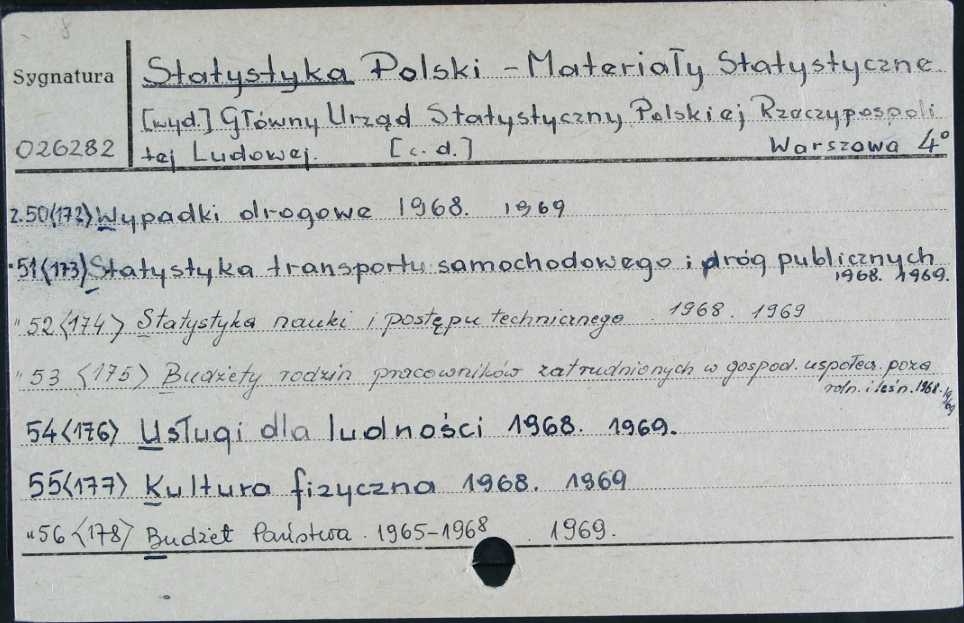 8
Sygnatura
026282
Statystyka Polski - Materiały Statystyczne
[wyd.] Główny Urząd Statystyczny Polskiej Rzeczypospoli
tej Ludowej. [c.d.] Warszawa 4°
z.50<172> Wypadki drogowe 1968. 1969
"51<173> Statystyka transportu samochodowego i dróg publicznych
1968. 1969.
"52<174> Statystyka nauki i postępu technicznego . 1968. 1969
"53 <175> Budżety rodzin pracowników zatrudnionych w gospod. uspołecz. poza
roln. i leśn. 1968. 1969
54<176> Usługi dla ludności 1968. 1969.
55<177> Kultura fizyczna 1968. 1969
"56<178> Budżet Państwa. 1965-1968 . 1969.